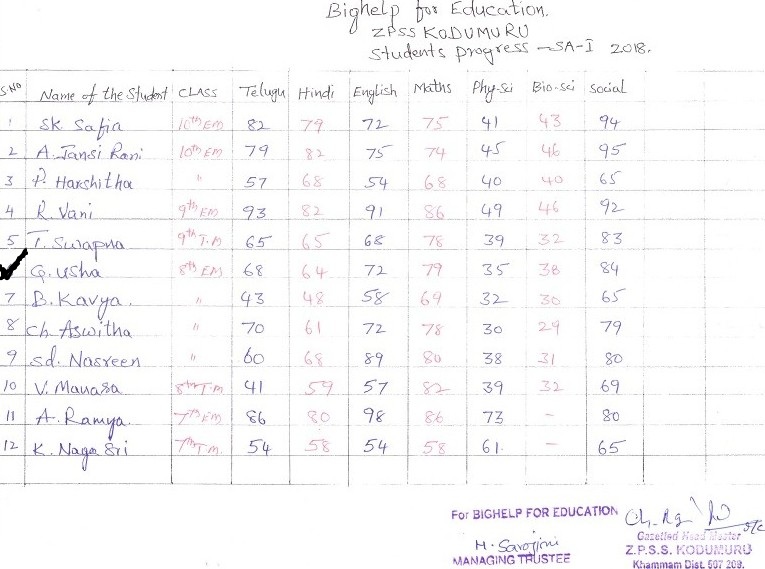 Bighelp for Education.
ZPSS KODUMURU
Students progress - SA-I 2018.
S.NO Name of the Student CLASS Telugu Hindi English Maths Phy-sci Bio-sci Social
1 SK. Safia 10th EM 82 79 72 75 41 43 94
2 A. Jansi Rani 10th EM 79 82 75 74 45 46 95
3 P. Harshitha " 57 68 54 68 40 40 65
4 R. Vani 9th EM 93 82 91 86 49 46 92
5 T. Swapna 9th T.M 65 65 68 78 39 32 83
G. Usha 8th EM 68 64 72 79 35 38 84
7 B. Kavya. " 43 48 58 69 32 30 65
8 Ch. Aswitha " 70 61 72 78 30 29 79
9 Sd. Nasreen " 60 68 89 80 38 31 80
10 V. Manasa 8th T.M 41 59 57 82 39 32 69
11 A. Ramya. 7th EM 86 80 98 86 73 - 80
12 K. Naga Sri 7th T.M. 54 58 54 58 61. - 65
For BIGHELP FOR EDUCATION
M. Sarojini
MANAGING TRUSTEE
Gazetted Head Master
Z.P.S.S. KODUMURU
Khammam Dist. 507 209.